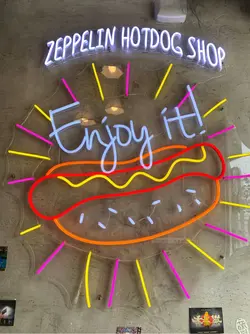 ZEPPELIN HOTDOG SHOP
Enjoy it!